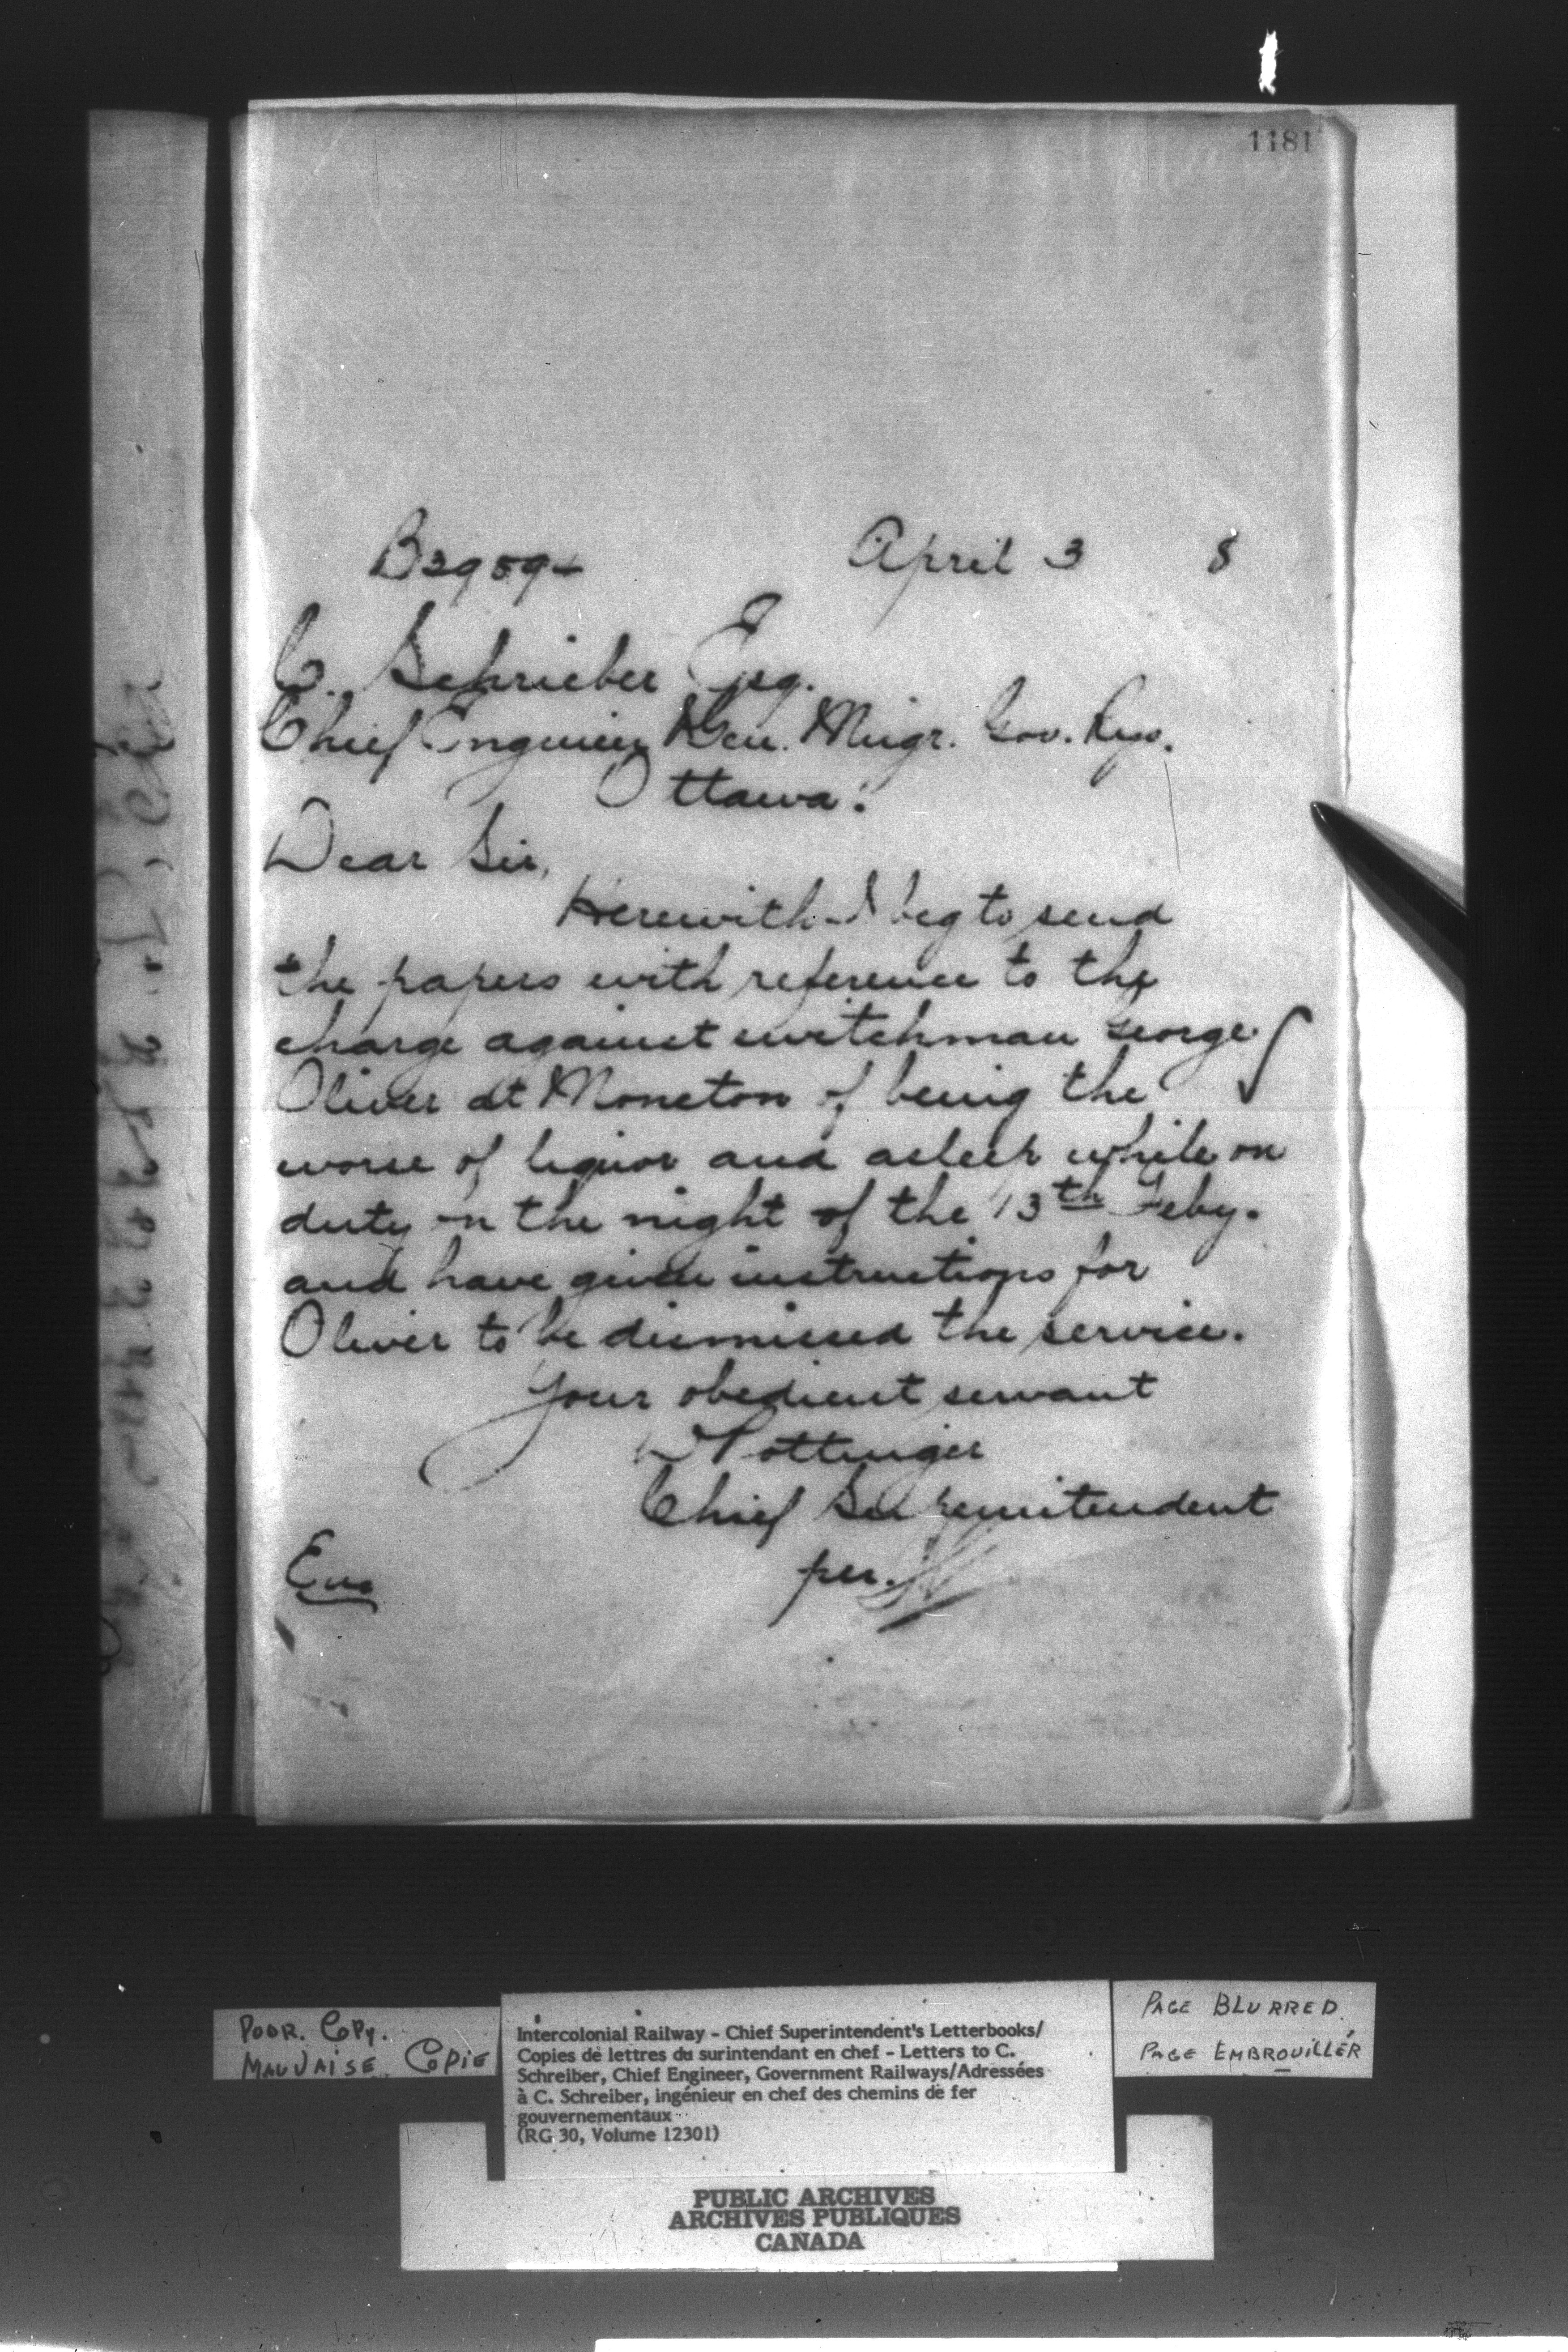 1181
B2959 April 3 8
C. Schrieber Esq.
Chief Engineer & Gen. Mngr. Gov. Rys.
Ottawa.
Dear Sir,
Herewith I beg to send
the papers with reference to the
charge against switchman George
Oliver at Moncton of being the
worse of liquor and asleep while on
duty on the night of the 13th Feby.
and have given instructions for
Oliver to be dismissed the service.
Your obedient servant
D Pottinger
Chief Superintendent
per.
Enc
POOR. COPY.
MAUVAISE COPIE
Intercolonial Railway - Chief Superintendent's Letterbooks/
Copies de lettres du surintendant en chef - Letters to C.
Schreiber, Chief Engineer, Government Railways/Adressées
à C. Schreiber, ingénieur en chef des chemins de fer
gouvernementaux
(RG 30, Volume 12301)
PAGE BLURRED
PAGE EMBROUILLÉR
PUBLIC ARCHIVES
ARCHIVES PUBLIQUES
CANADA